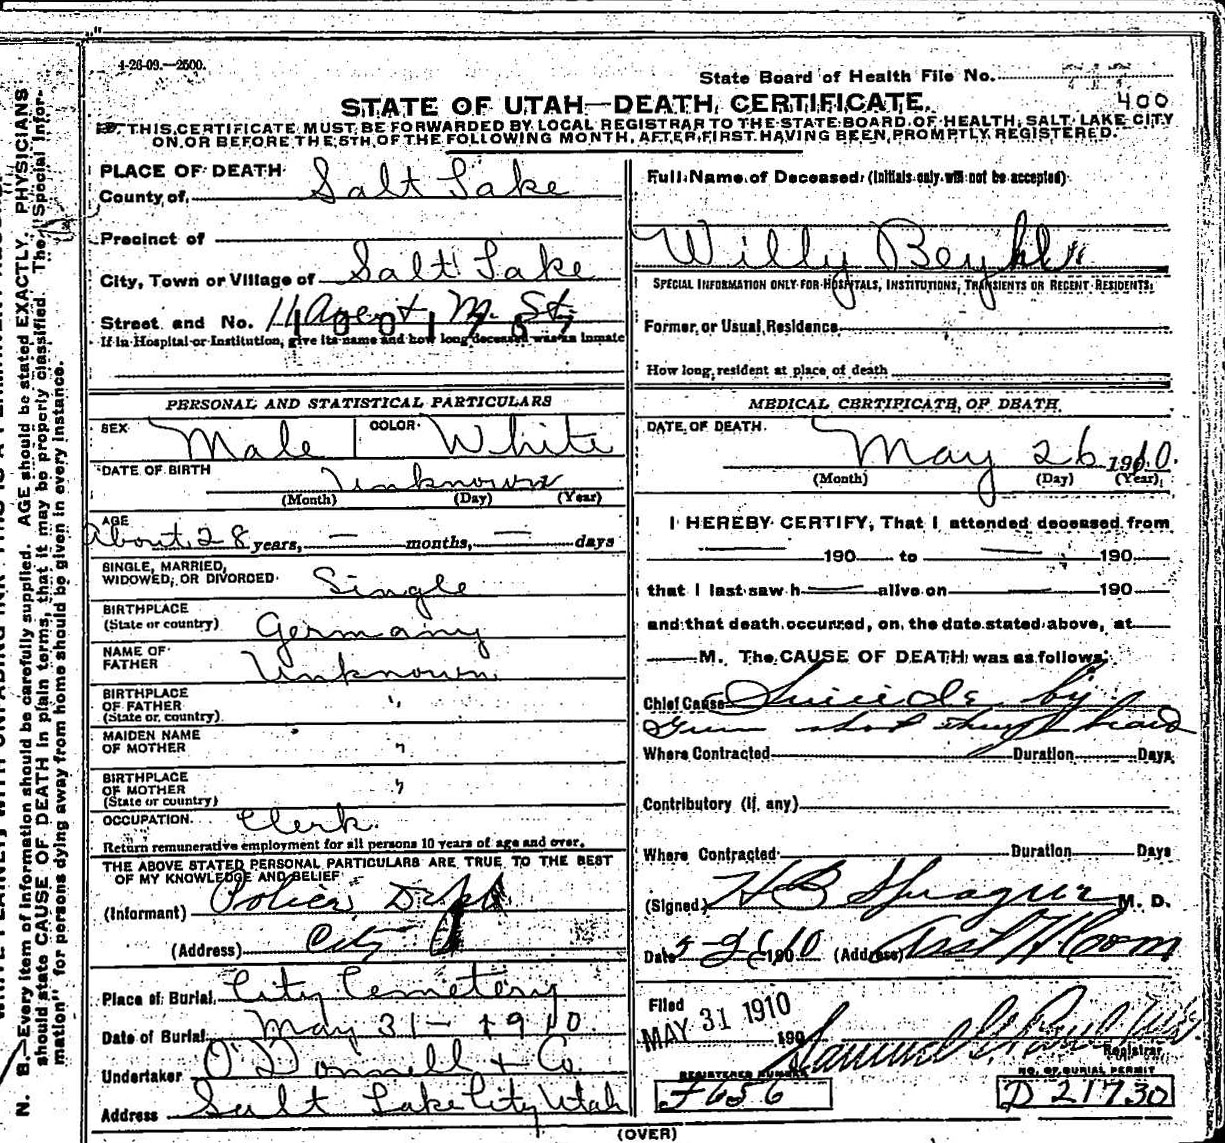 1-26-09.—2500.
State Board of Health File No.
400
STATE OF UTAH—DEATH CERTIFICATE.
THIS CERTIFICATE MUST BE FORWARDED BY LOCAL REGISTRAR TO THE STATE BOARD OF HEALTH, SALT LAKE CITY
ON OR BEFORE THE 5TH OF THE FOLLOWING MONTH, AFTER FIRST HAVING BEEN PROMPTLY REGISTERED.
PLACE OF DEATH
County of, Salt Lake
Precinct of
City, Town or Village of Salt Lake
Street and No. 11 Ave + M. St.
If in Hospital or Institution, give its name and how long deceased was an inmate
PERSONAL AND STATISTICAL PARTICULARS
SEX Male COLOR White
DATE OF BIRTH Unknown
(Month) (Day) (Year)
AGE
About 28 years, — months, — days
SINGLE, MARRIED,
WIDOWED, OR DIVORCED Single
BIRTHPLACE
(State or country) Germany
NAME OF
FATHER Unknown
BIRTHPLACE
OF FATHER "
(State or country)
MAIDEN NAME
OF MOTHER "
BIRTHPLACE
OF MOTHER "
(State or country)
OCCUPATION Clerk.
Return remunerative employment for all persons 10 years of age and over.
THE ABOVE STATED PERSONAL PARTICULARS ARE TRUE TO THE BEST
OF MY KNOWLEDGE AND BELIEF
(Informant) Police Dept
(Address) City
Place of Burial City Cemetery
Date of Burial May 31 - 1910
Undertaker O'Donnell & Co.
Address Salt Lake City Utah
Full Name of Deceased (Initials only will not be accepted)
Willy
SPECIAL INFORMATION ONLY FOR HOSPITALS, INSTITUTIONS, TRANSIENTS OR RECENT RESIDENTS:
Former or Usual Residence
How long resident at place of death
MEDICAL CERTIFICATE OF DEATH
DATE OF DEATH.
May 26 1910.
(Month) (Day) (Year)
I HEREBY CERTIFY, That I attended deceased from
— 190 to — 190
that I last saw h — alive on — 190
and that death occurred, on the date stated above, at
M. The CAUSE OF DEATH was as follows:
Chief Cause Suicide by
Gun shot through head
Where Contracted Duration Days
Contributory (If any)
Where Contracted Duration Days
(Signed) H B Sprague M. D.
Date 190 (Address) Asst H. Com
Filed
MAY 31 1910 190
Registrar
REGISTERED NUMBER
NO. OF BURIAL PERMIT
D 21730
(OVER)
N. B.—Every item of information should be carefully supplied. AGE should be stated EXACTLY. PHYSICIANS
should state CAUSE OF DEATH in plain terms, that it may be properly classified. The "Special Infor-
mation" for persons dying away from home should be given in every instance.